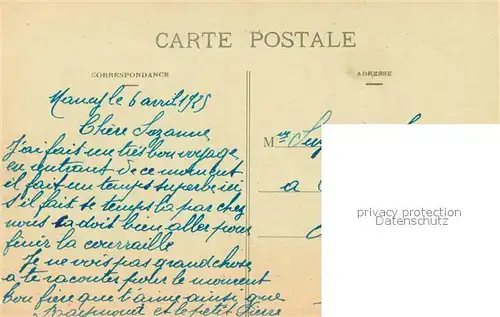 CARTE POSTALE
CORRESPONDANCE
ADRESSE
Nancy le 6 avril 1925
Chère Suzanne
J'ai fait un très bon voyage
en entrant de ce moment
il fait un temps superbe ici
s'il fait se temps la par chez
nous ta doit bien aller pour
finir la courraille
Je ne vois pas grand chose
a te raconter pour le moment
bon fiere que t'aime ainsi que
Raymond et le petit Pierre
Mlle Suz
a
privacy protection
Datenschutz